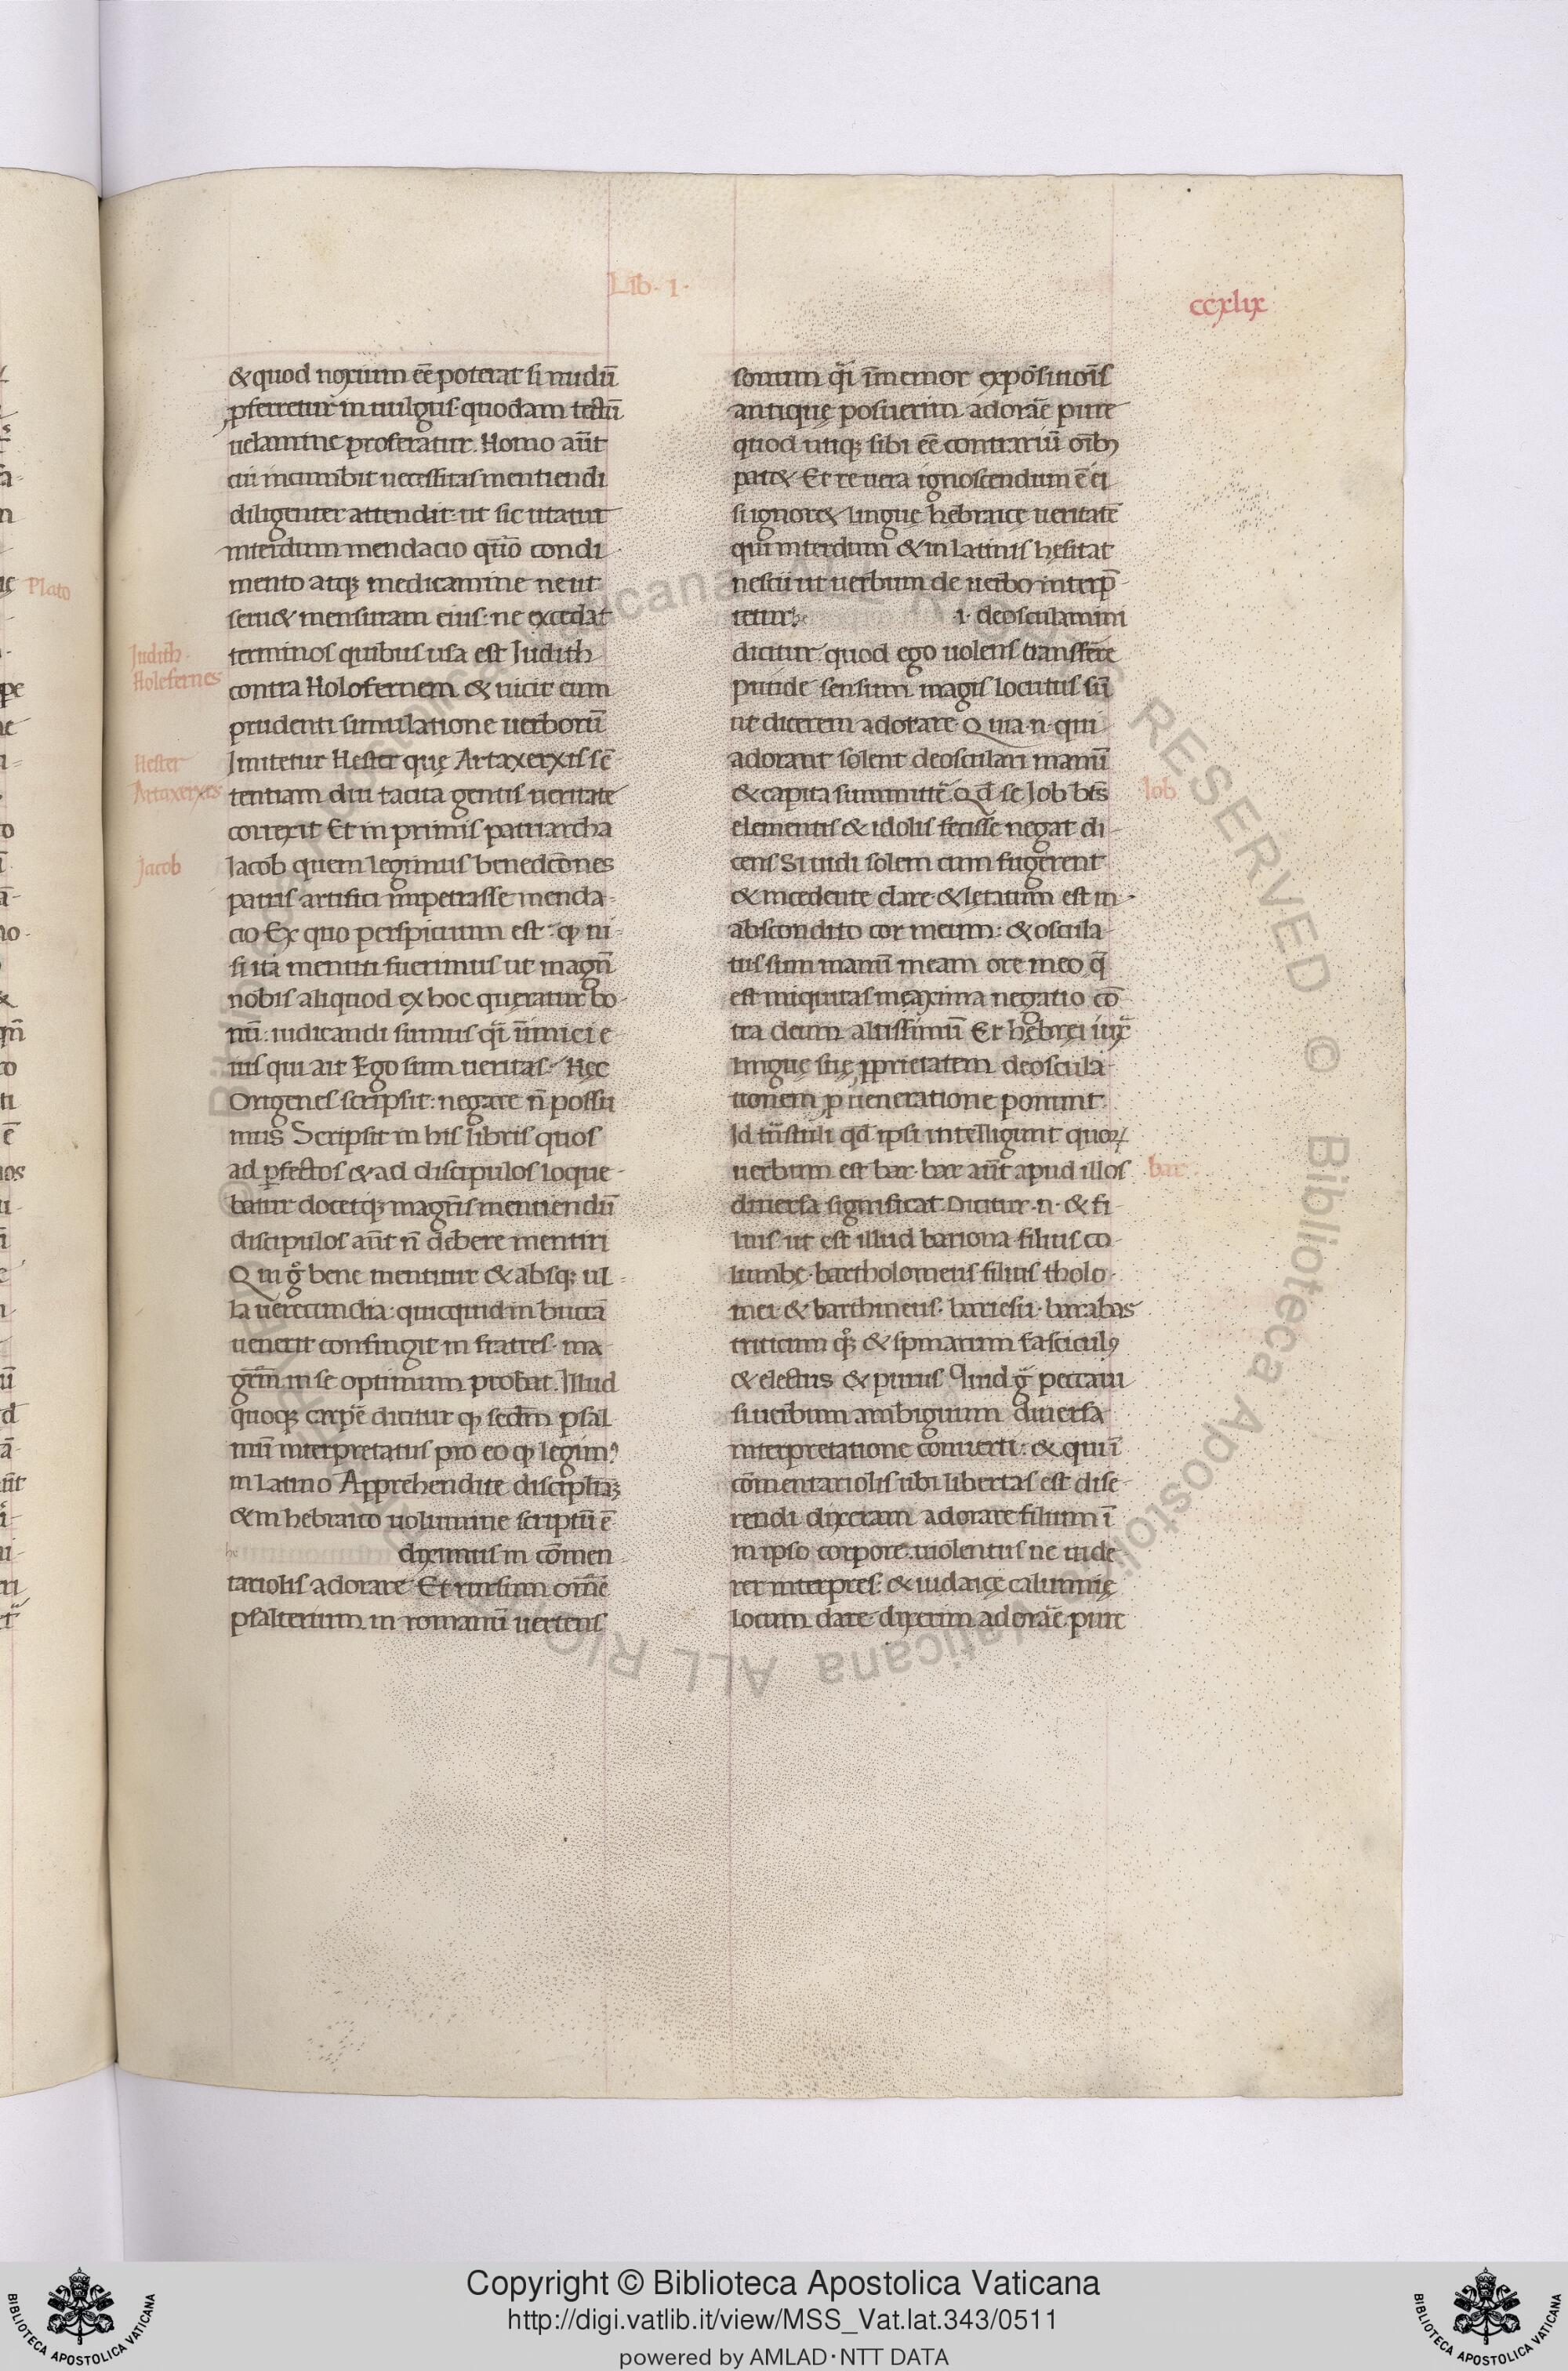 Lib. 1.
ccxlix
& quod noxium eē poterat si nudū
ꝓferretur in uulgus· quodam tectū
uelamine proferatur. Homo aūt
cui incumbit necessitas mentiendi
diligenter attendat· ut sic utatur
interdum mendacio qūo condi
mento atqꝫ medicamine· ne ut
seru& mensuram eius: ne excedat
terminos quibus usa est Iudith
contra Holofernem & uicit eum
prudenti simulatione uerborū
Imitetur Hester quę Artaxerxis sē
tentiam diu tacita gentis ueritate
correxit Et in primis patriarcha
Iacob quem legimus benedc̄ones
patris artifici impetrasse menda
cio Ex quo perspicuum est· ꝙ ni
si ita mentiti fuerimus ut magnū
nobis aliquod ex hoc quęratur bo
nū: iudicandi simus qͣi īimici e
ius qui ait Ego sum ueritas· Hęc
Origenes scripsit: negare n̄ possu
mus Scripsit in his libris quos
ad ꝑfectos & ad discipulos loque
batur docetqꝫ magr̄is mentiendū
discipulos aūt n̄ debere mentiri
Qui g̊ bene mentitur & absqꝫ ul
la uerecundia· quicquid in bucca
uenerit confingit in fratres· ma
gr̄m in se optimum probat. Illud
quoqꝫ carpē dicitur ꝙ secdm̄ psal
mū interpretatus pro eo ꝙ legimꝰ
in Latino Apprehendite disciplinā
& in hebraico uolumine scriptū ē
diximus in cōmen
tariolis· adorare Et rursum omē
psalterium in romanū uertens
sonum qͣi īmemor expōsitiōis
antiquę posuerim adorāe pure
quod utiqꝫ sibi eē contrariū oībꝫ
pat& Et re uera ignoscendum ē ei
si ignor& linguę hębraicę ueritatē
qui interdum & in latinis hęsitat
nescii ut uerbum de uerbo interp̄
tetur
i· deosculamini
dicitur· quod ego nolens transfērre
putide sensum magis locutus sū
ut dicerem adorare Quia ·n· qui
adorant solent deosculari manū
& capita summittē Qd̄ se Iob bt̄s
elementis & idolis fecisse negat di
cens Si uidi solem cum fugerent
& incedente clare & letatum est in
abscondito cor meum: & oscula
tus sum manū meam ore meo q̄
est iniquitas maxima negatio cō
tra deum altissimū Et hębręi iuxͣ
linguę suę ꝓprietatem deoscula
tionem ꝓ ueneratione ponunt
Id tn̄stuli qd̄ ipsi intelligunt quorꝝ
uerbum est bar· bar aūt apud illos
diuersa significat Dicitur ·n· & fi
lius· ut est illud bariona filius co
lumbę· bartholomeus filius tholo
mei & barthineus· bariesu· barabas
triticum qꝫ & spinarum fasciculꝰ
& electus & purus Quid g̊ peccaui
si uerbum ambiguum diuersa
interpretatione conuerti: & qui ī
cōmentariolis ubi libertas est dise
rendi dixeram adorare filium ī
in ipso corpore· uiolentus ne uide
rer interpres: & iudaicę calumnię
locum dare· dixerim adorāe· pure
Plato
Iudith
Holofernes
Hester
Artaxerxes
Jacob
Iob
bar
Copyright © Biblioteca Apostolica Vaticana
http://digi.vatlib.it/view/MSS_Vat.lat.343/0511
powered by AMLAD·NTT DATA
BIBLIOTECA APOSTOLICA VATICANA
BIBLIOTECA APOSTOLICA VATICANA